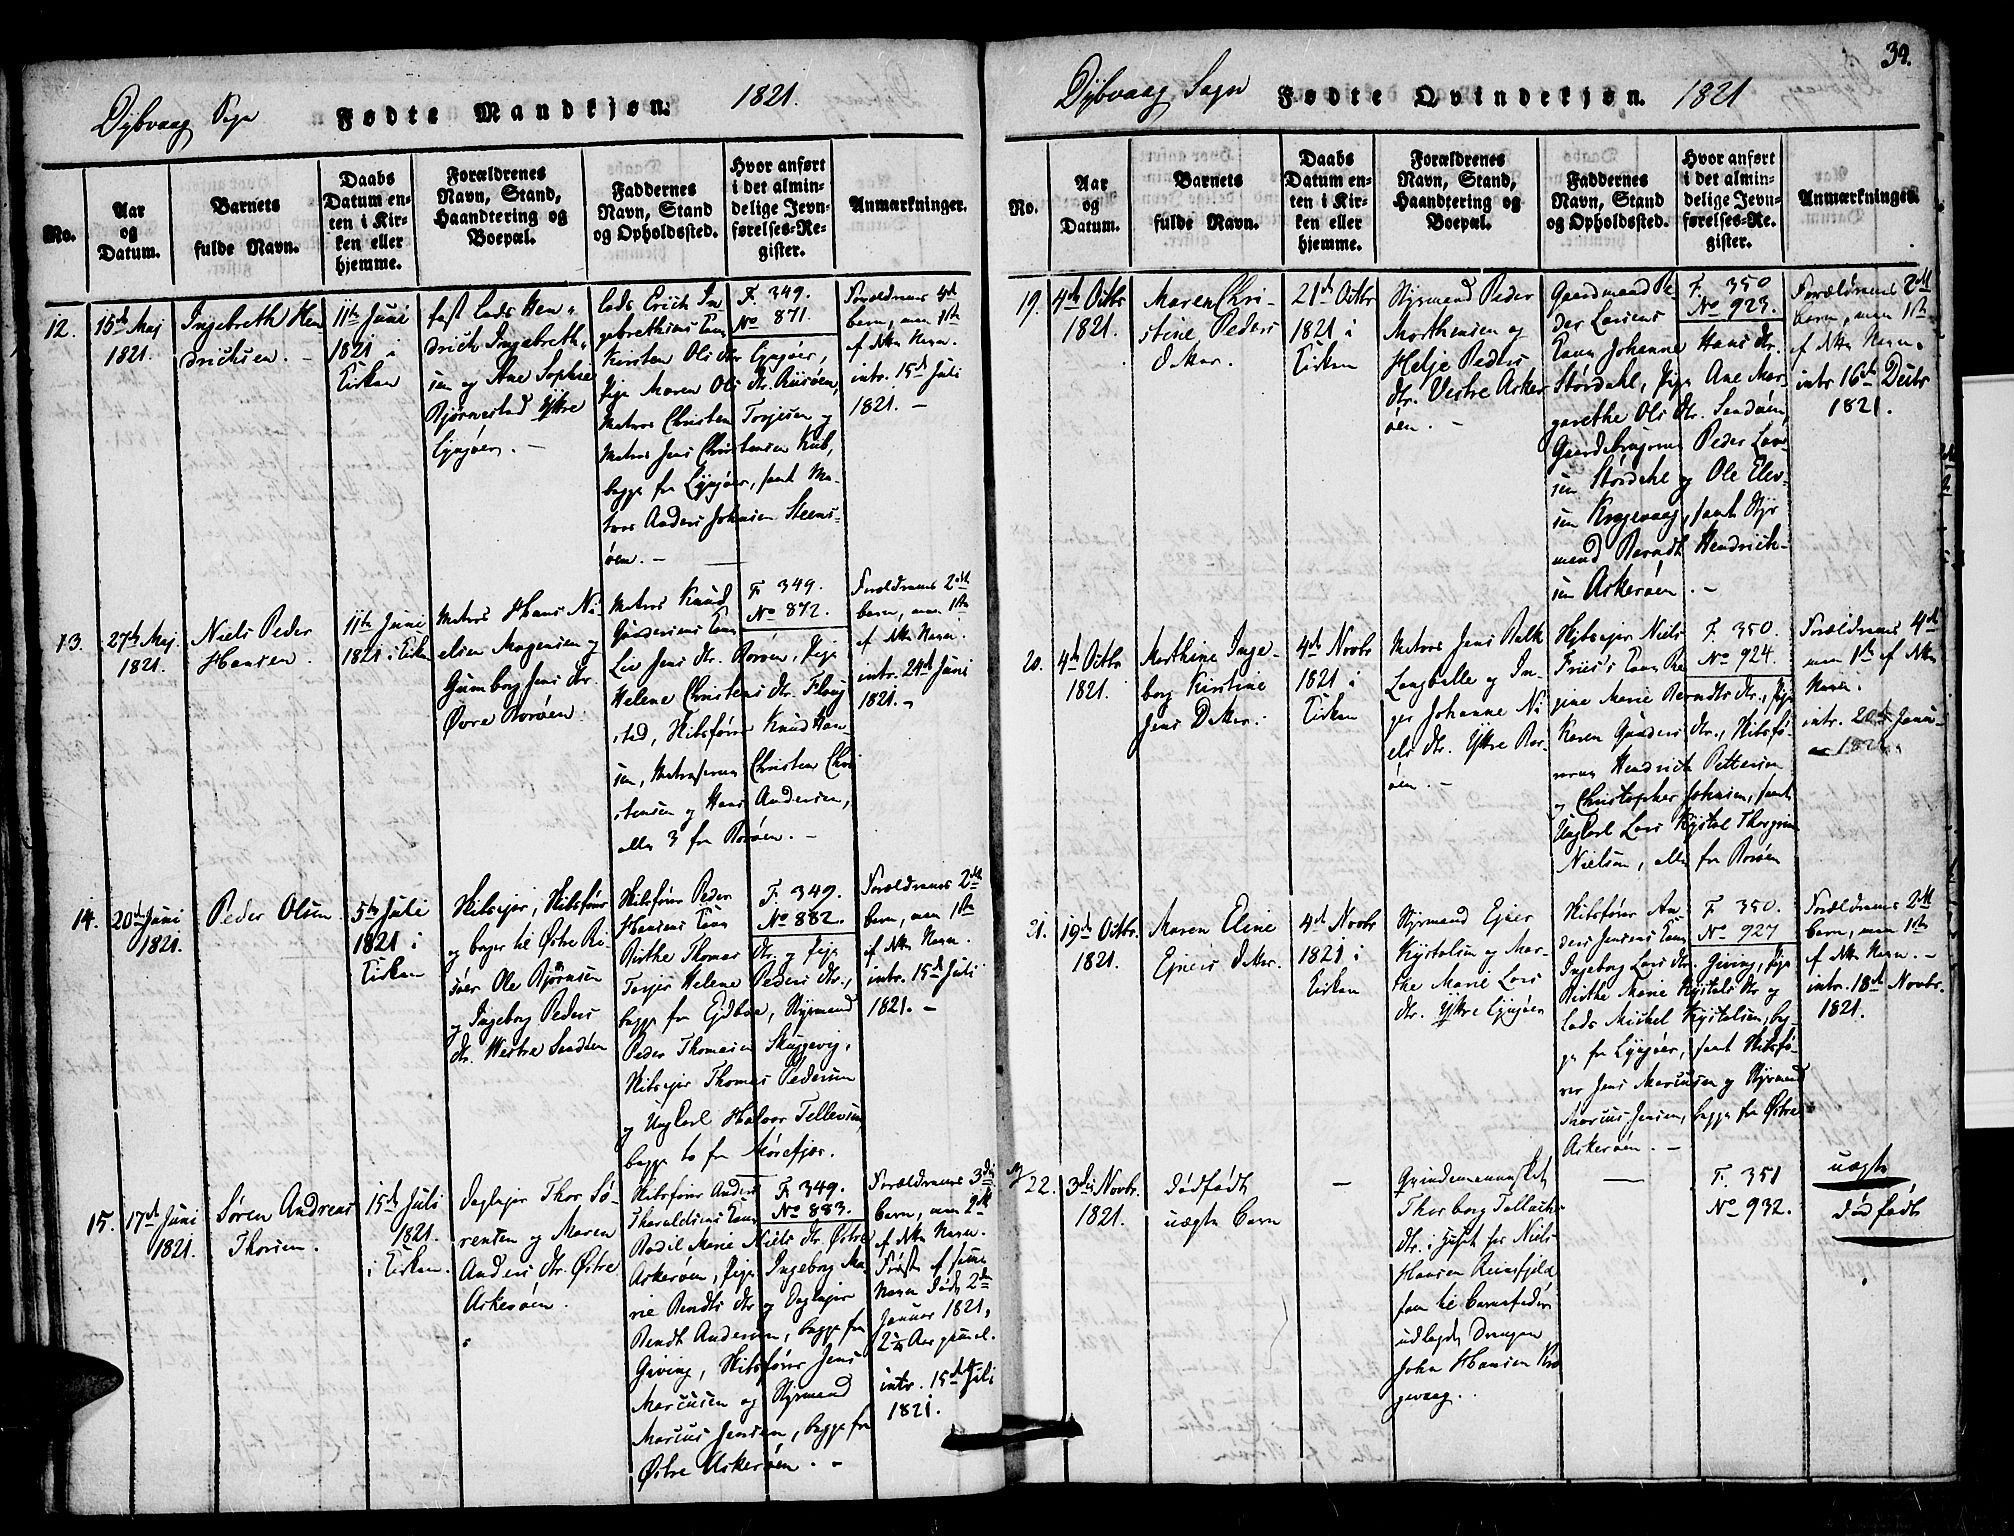 Dybvaag Sogn
Fødte Mandkjøn.
1821.
No.
Aar og Datum.
Barnets fulde Navn.
Daabs Datum enten i Kirken eller hjemme.
Forældrenes Navn, Stand, Haandtering og Boepæl.
Faddernes Navn, Stand og Opholdssted.
Hvor anført i det almindelige Jevnførelses-Register.
Anmærkninger.
12.
15de Maj
1821.
Ingebreth Hen
drichsen.
11te Juni
1821 i
Kirken
Hen
drich Ingebreth
sen og Ane Sophie
Bjørnestad Yttre
Lyngøer.
Erich In
gebrethsens
Kirsten Ols dtr. Lyngøer,
Pige Maren Ols dtr. Riisøen,
Matros Christen Torjesen og
Matros Jens Christensen Kub,
begge fra Lyngøer, samt Ma-
tros Anders Johnsen Steens-
øen.
F. 349.
No 871.
Forældrenes 4de
barn, men 1ste
af dette Navn.
intr. 15de Juli
1821.
13.
27de Maj
1821.
Niels Peder
Hansen.
11te Juni
1821 i Kirken
Matros Hans Ni
elsen Mogensen og
Gumborg Jens dtr.
Øvre Borøen.
Matros Knud
Gundersens
Liv Jens dtr. Borøen, Pige
Helene Christens dtr. Flaug
stad, Skibsfører Knud Han-
sen, Matroserne Christen Chri
stensen og Hans Andersen,
alle 3 fra Borøen.
F. 349.
No 872.
Forældrenes 2det
barn, men 1ste
af dette Navn.
intr. 24de Juni
1821.
14.
20de Juni
1821.
Peder Olsen.
5te Juli
1821 i
Kirken
Skibsejer, Skibsfører
og boger til Østre Ri
søer Ole Bjørnsen
og Ingeborg Peders
dtr. Westre Sandøen
Skibsfører Peder
Hansens
Birthe Thomas dtr. og Pige
Torjer Helene Peders dtr.,
begge fra Ejdboe, Styrmand
Peder Thomesen Skuggevig,
Skibsejer Thomas Pedersen
og Ungkarl Halvor Tellevsen
begge to fra Mørefjær.
F. 349.
No 882.
Forældrenes 2det
barn, men 1ste
af dette Navn.
intr. 15de Juli
1821.
15.
17de Juni
1821.
Søren Andreas
Thorsen.
15de Juli
1821.
i Kirken.
Thor Sø-
rensen og Maren
Anders dtr. Østre
Askerøen.
Skibsfører Anders
Tharaldsens
Bodil Marie Niels dtr. Østre
Askerøen, Pige Ingeborg Ma
rie Bendts dtr og
Bendt Andersen, begge fra
Giving, Skibsfører Jens
Marcusen og Styrmand
Marcus Jensen, begge fra
Østre Askerøen.
F. 349.
No 883.
Forældrenes 3die
barn, men 2det
af dette Navn.
Første af samme
Navn døde 2den
Januar 1821,
2 Aar gammel.
intr. 15de Juli
1821.
Dybvaag Sogn
Fødte Qvindekjøn.
1821
34.
No.
Aar og Datum.
Barnets fulde Navn.
Daabs Datum enten i Kirken eller hjemme.
Forældrenes Navn, Stand, Haandtering og Boepæl.
Faddernes Navn, Stand og Opholdssted.
Hvor anført i det almindelige Jevnførelses-Register.
Anmærkninger.
19.
4de Octbr
1821.
Maren Chri-
stine Peders
datter.
21de Octbr
1821 i
Kirken
Styrmand Peder
Morthensen og
Helje Peders
dtr. Vestre Asker
øen.
Gaardmand Pe-
der Larsens
Johanne Hans dtr.
Størdahl, Pige Ane Mar-
garethe Ols dtr. Sandøen,
Gaardbrugerne Peder Lar
sen Størdahl og Ole Elev-
sen Krogevaag, samt Styr
mand Berndt Hendrich-
sen Askerøen.
F. 350
No 923.
Forældrenes 2det
barn, men 1ste
af dette Navn.
intr 16de Decbr
1821.
20.
4de Octbr
1821.
Marthine Inge-
borg Kirstine
Jens Datter.
4de Novbr
1821 i
Kirken
Matros Jens Balk
Langballe og In-
ger Johanne Ni
els dtr. Yttre Bor-
øen.
Skibsejer Niels
Fries's Re
gine Marie Berndts dtr., Pige
Karen Gunders dtr., Skibsfø-
rerne Hendrich Pettersen
og Christopher Johnsen, samt
Ungkarl Lars Kystol Thorgrim
Nielsen, alle fra Borøen
F. 350.
No 924.
Forældrenes 4de
men 1ste af dette
Navn.
intr. 20de Janu-
21.
19de Octbr.
1821.
Maren Eline
Ejners datter.
4de Novbr
1821 i
Kirken
Styrmand Ejner
Kystolsen og Mar-
the Marie Lars
dtr. Yttre Lyngøer
Skibsfører An-
ders Jensens
Ingeborg Lars dtr. Giving, Pige
Birthe Marie Kystols dtr og
Lods Mickel Kystolsen, beg-
ge fra Lyngøer, samt Skibsfø-
rer Jens Marcusen og Styrmand
Marcus Jensen, begge fra Østre
Askerøen.
F 350.
No 927
Forældrenes 2det
barn, men 1ste
af dette Navn.
intr. 18de Novbr.
1821.
22.
3die Novbr.
1821.
dødfødt
uægte barn
Qvindemennesket
Thorborg Tellachs
dtr. i huset hos Niels
Hansen Reinsfjeld
som til barnefader
udlagde Drengen
John Hansen Kro
gevaag.
F. 351
No 932.
uægte
dødfødt